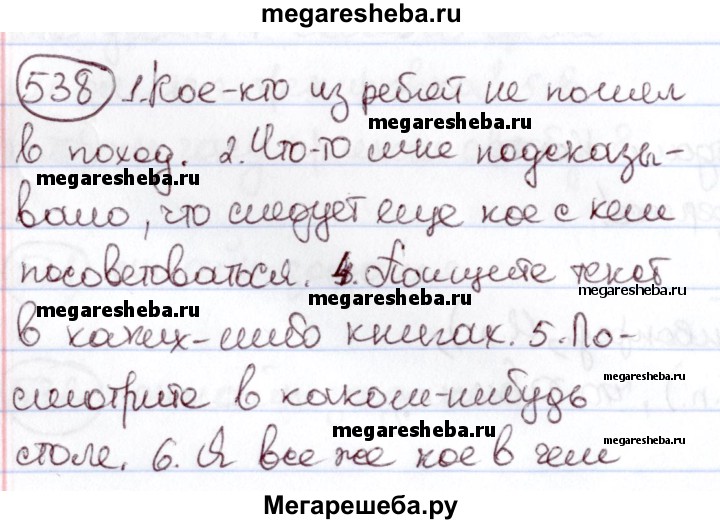 megaresheba.ru
538 1. Кое-кто из ребят не пошел
megaresheba.ru
в поход. 2. Что-то мне подсказы-
megaresheba.ru
вало, что следует еще кое с кем
посоветоваться. 4. Поищите текст
megaresheba.ru
megaresheba.ru
megaresheba.ru
в каких-либо книгах. 5. По-
megaresheba.ru
смотрите в каком-нибудь
megaresheba.ru
megaresheba.ru
столе. 6. Я все же кое в чем
Мегарешеба.ру